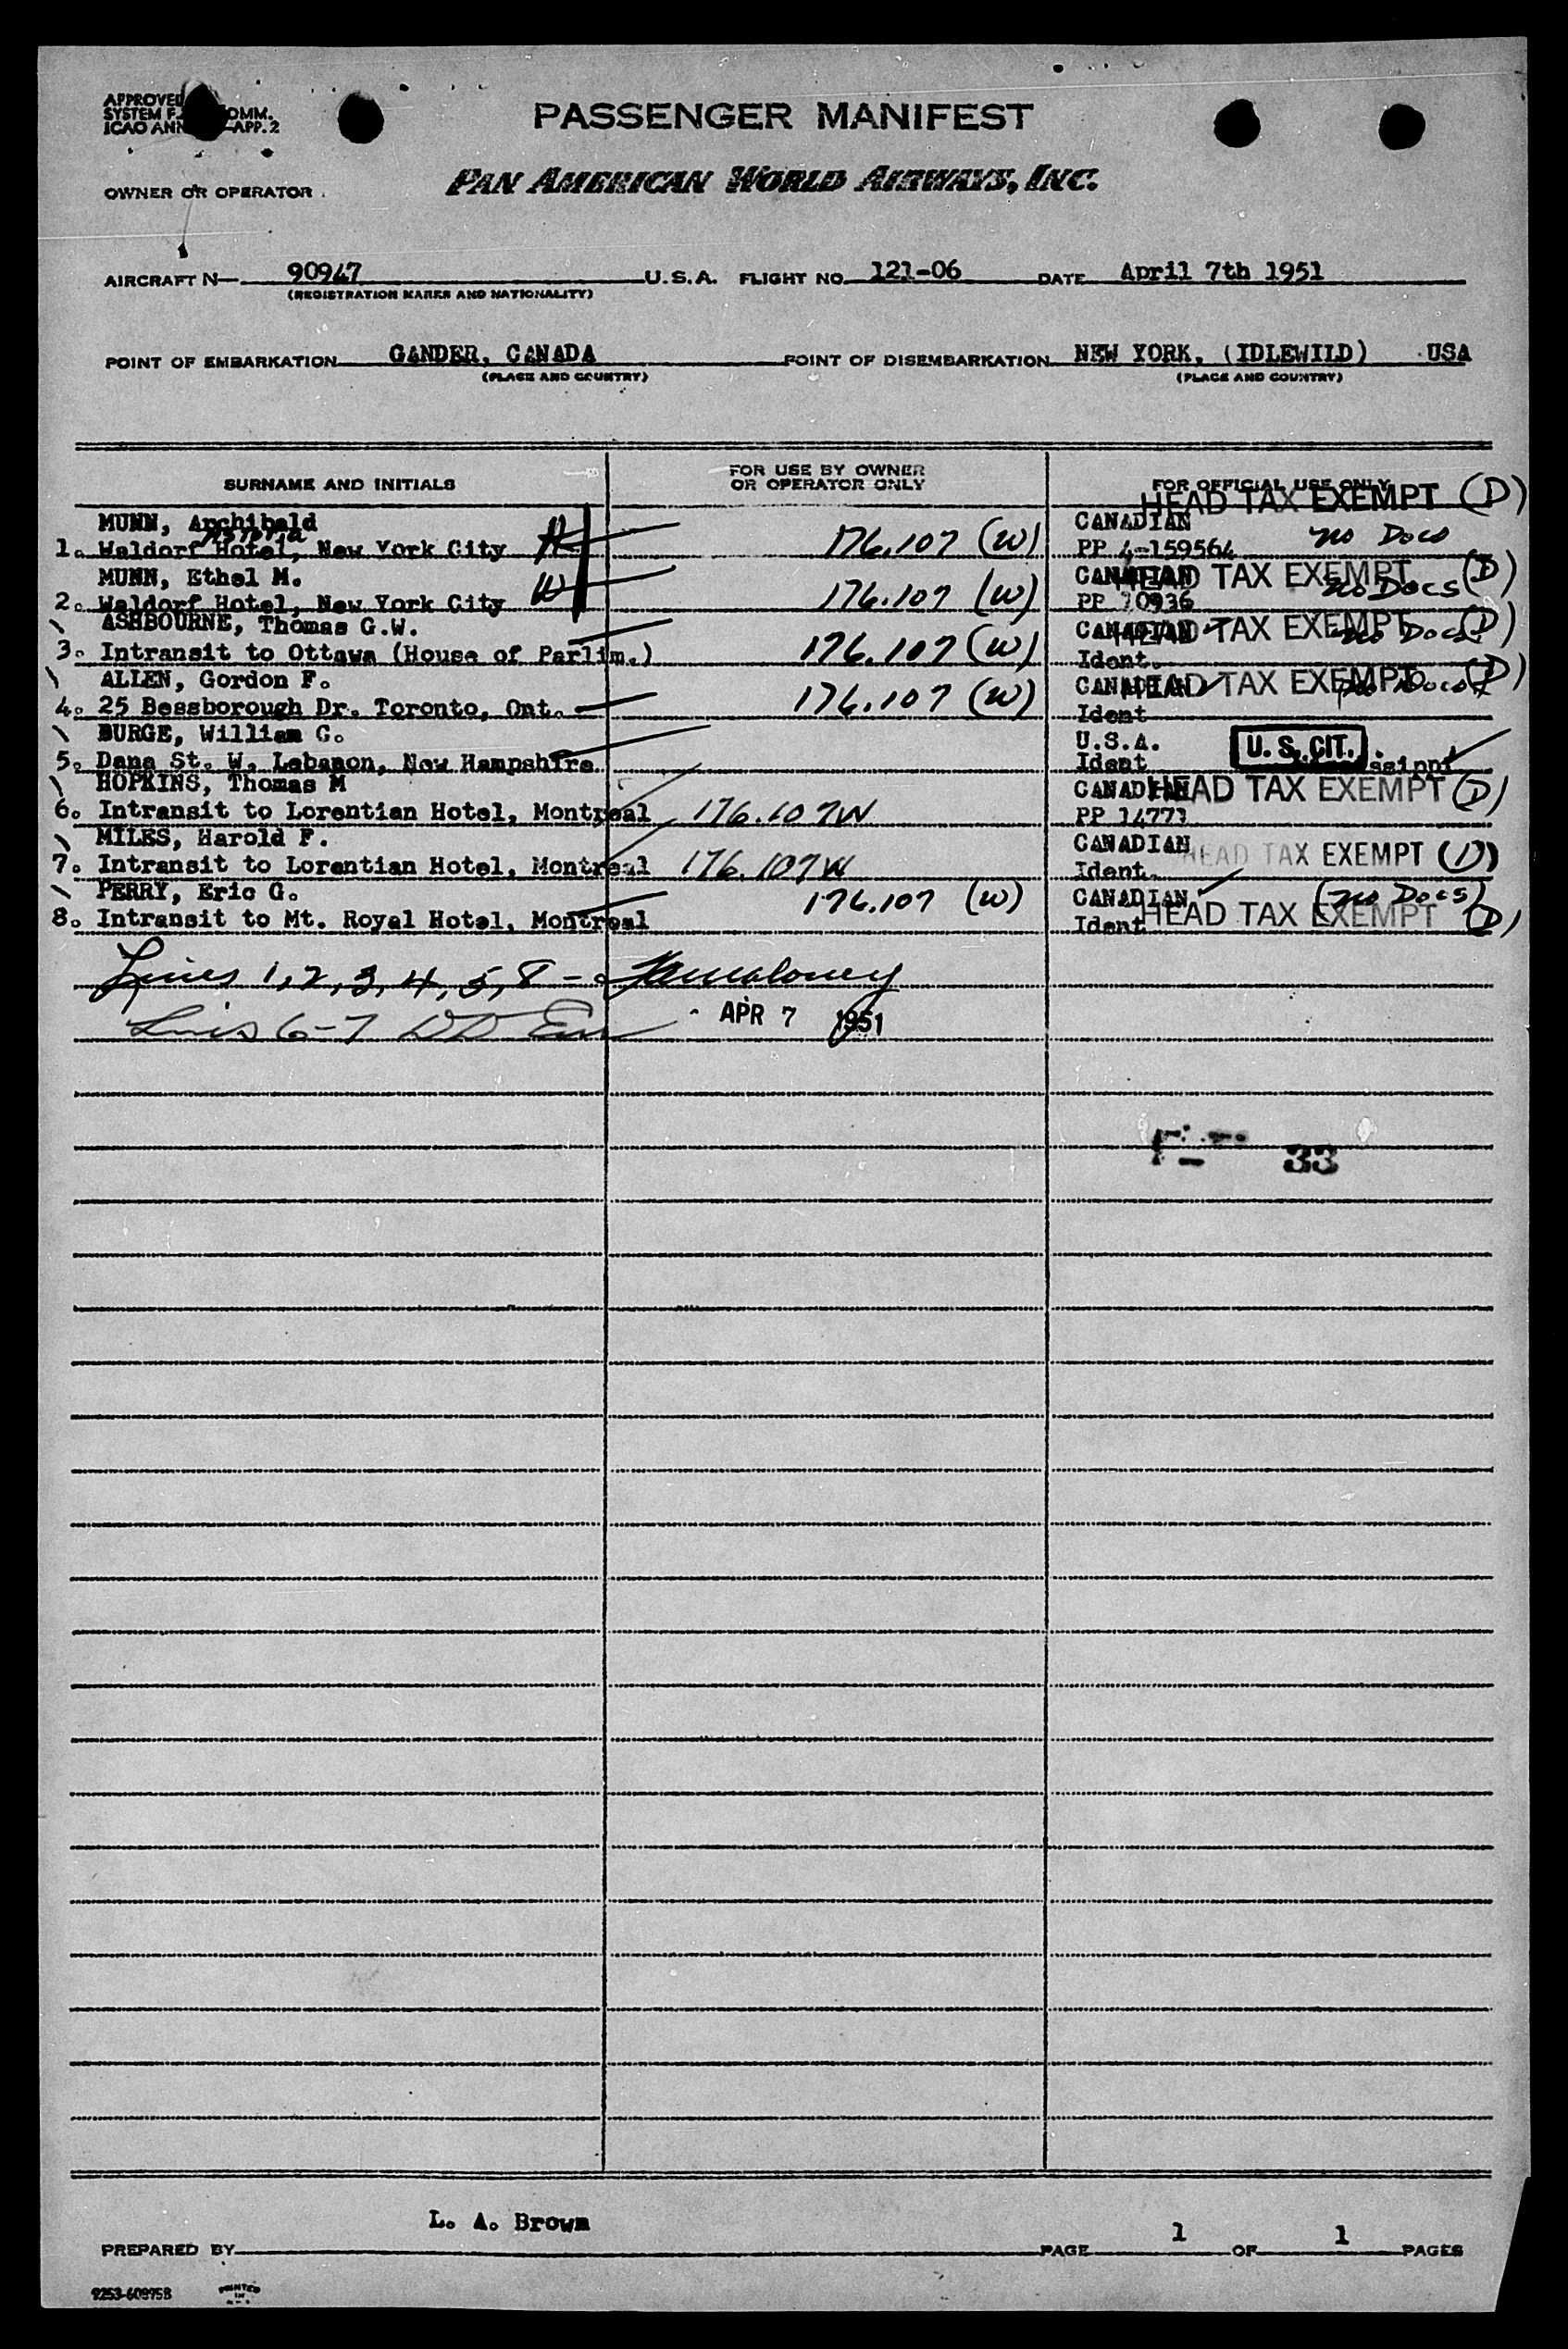 APPROVED
SYSTEM F. COMM.
ICAO ANN APP. 2
PASSENGER MANIFEST
OWNER OR OPERATOR
PAN AMERICAN WORLD AIRWAYS, INC.
AIRCRAFT N— 90947 U.S.A. FLIGHT NO. 121-06 DATE April 7th 1951
(REGISTRATION MARKS AND NATIONALITY)
POINT OF EMBARKATION GANDER, CANADA POINT OF DISEMBARKATION NEW YORK, (IDLEWILD) USA
(PLACE AND COUNTRY) (PLACE AND COUNTRY)
SURNAME AND INITIALS FOR USE BY OWNER OR OPERATOR ONLY FOR OFFICIAL USE ONLY
HEAD TAX EXEMPT (D)
MUNN, Archibald CANADIAN no Docs
Astoria
1. Waldorf Hotel, New York City 176.107 (W) PP 4-159564
MUNN, Ethel M. CANADIAN HEAD TAX EXEMPT (D)
2. Waldorf Hotel, New York City 176.107 (W) PP 70936 no Docs
ASHBOURNE, Thomas G.W. CANADIAN HEAD TAX EXEMPT (D)
3. Intransit to Ottawa (House of Parlim.) 176.107 (W) Ident. no Docs
ALLEN, Gordon F. CANADIAN HEAD TAX EXEMPT (D)
4. 25 Bessborough Dr. Toronto, Ont. 176.107 (W) Ident no Docs
BURGE, William G. U.S.A. U. S. CIT.
5. Dana St. W. Lebanon, New Hampshire Ident ssippi
HOPKINS, Thomas M CANADIAN HEAD TAX EXEMPT (D)
6. Intransit to Lorentian Hotel, Montreal 176.107W PP 14773
MILES, Harold F. CANADIAN HEAD TAX EXEMPT (D)
7. Intransit to Lorentian Hotel, Montreal 176.107W Ident.
PERRY, Eric G. 176.107 (W) CANADIAN (no Docs)
8. Intransit to Mt. Royal Hotel, Montreal Ident HEAD TAX EXEMPT (D)
Lines 1,2,3,4,5,8 -
Lines 6-7
APR 7 1951
33
L. A. Brown
PREPARED BY PAGE 1 OF 1 PAGES
9253-60975B PRINTED IN